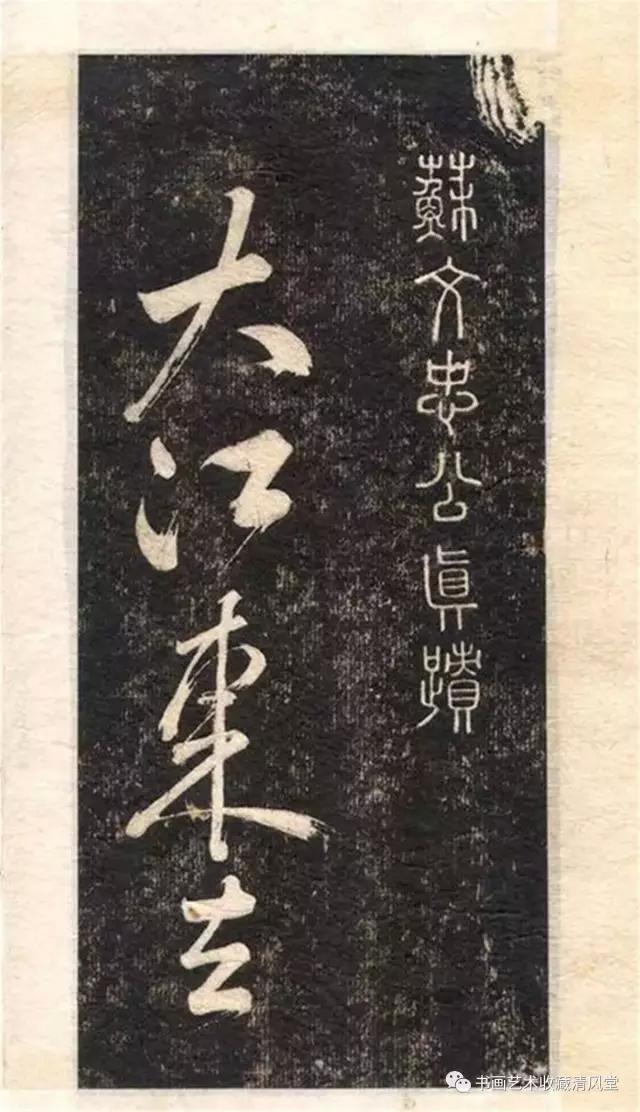 蘇文忠公真蹟
大江東去
书画艺术收藏清风堂